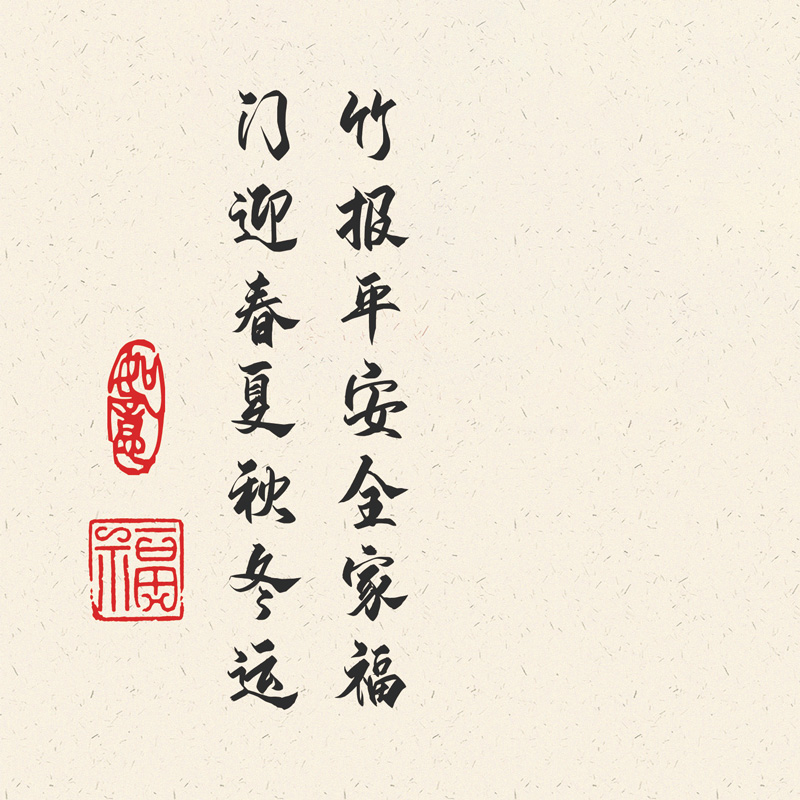 竹报平安全家福
门迎春夏秋冬运
如意
福